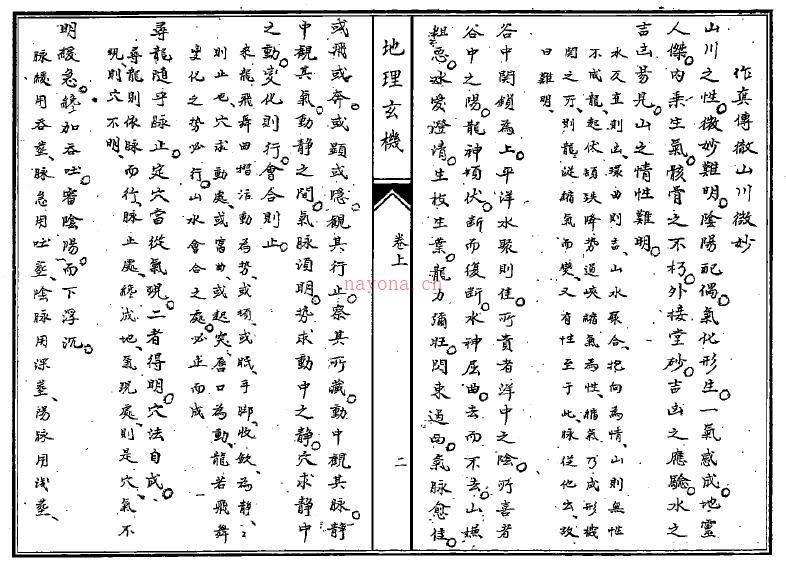 作真傳徹山川微妙
山川之性。微妙難明。陰陽配偶。氣化形生。一氣感成。地靈
人傑。內乘生氣。骸骨之不朽。外接堂砂。吉凶之應驗。水之
吉凶昜見。山之情性難明。
水反直則凶、環曲則吉、山水聚合、抱向為情、山則無性
不成龍、起伏頓跌降勢過峽縮氣為性、縮氣乃成形機
関之所、則龍從縮氣而變、又有性至于此、脉從他出、故
曰難明、
谷中関鎖為上。平洋水聚則佳。所貴者洋中之陰。所喜者
谷中之陽。龍神頓伏。断而復断。水神屈曲。去而不去。山嫌
粗惡。水愛澄清。生枝生葉。龍力彌旺。閃東過西。氣脉愈佳。
地理玄機
卷上
二
或飛或奔。或顕或隠。觀其行止。察其所藏。動中觀其脉。静
中觀其氣。動静之間。氣脉須明。勢求動中之静。穴求静中
之動。變化則行。會合則止。
來龍飛舞曲摺活動為勢、或頓、或眠、手脚、收歛、為静、
則止也、穴求動處、或窩曲、或起突、唇口為動、龍若飛舞
变化之勢必行。山水會合之處、必止而成
尋龍随乎脉止。定穴當從氣現。二者得明。穴法自成。
尋龍則依脉而行、脉止處、終成地、氣現處、則是穴、氣不
現、則穴不明、
明緩急。終加吞吐。審陰陽。而下浮沉。
脉緩用吞塟、脉急用吐塟、陰脉用深塟、陽脉用浅塟、
nayona.cn